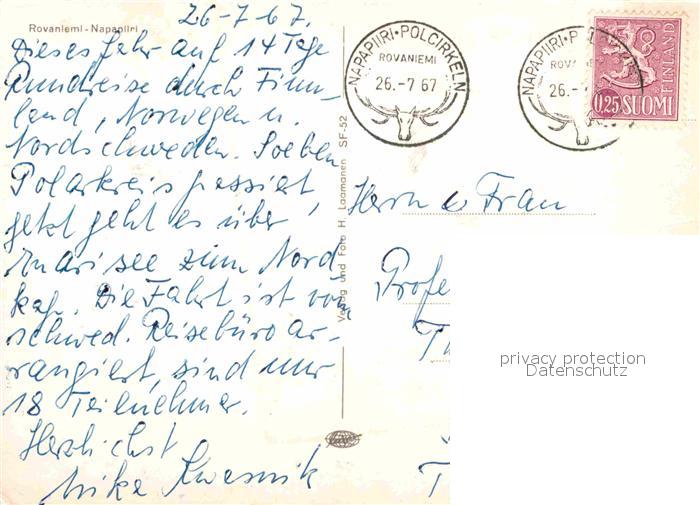 Rovaniemi - Napapiiri
26-7-67.
Dieses Jahr auf 14 Tage
Rundreise durch Finn-
land, Norwegen u.
Nordschweden. Soeben
Polarkreis passiert,
jetzt geht es über
Inarisee zum Nord
kap. Die Fahrt ist vom
schwed. Reisebüro ar-
rangiert, sind nur
18 Teilnehmer.
Herzlichst
Verlag und Foto H. Laamanen SF-52
NAPAPIIRI•POLCIRKELN
ROVANIEMI
26.-7 67
NAPAPIIRI•P
26.-
0,25 SUOMI
FINLAND
Herrn u Frau
Profe
privacy protection
Datenschutz